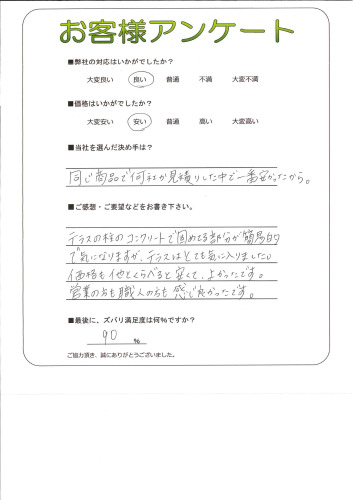 お客様アンケート
■弊社の対応はいかがでしたか?
大変良い 良い 普通 不満 大変不満
■価格はいかがでしたか?
大変安い 安い 普通 高い 大変高い
■当社を選んだ決め手は?
同じ商品で何社か見積りした中で一番安かったから。
■ご感想・ご要望などをお書き下さい。
テラスの柱のコンクリートで固めてる部分が簡易的
で気になりますが、テラスはとても気に入りました。
価格も他とくらべると安くて、よかったです。
営業の方も職人の方も感じ良かったです。
■最後に、ズバリ満足度は何%ですか?
90 %
ご協力頂き、誠にありがとうございました。